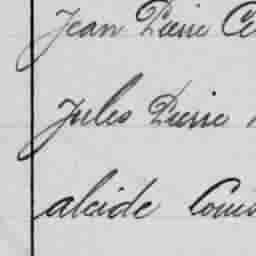 Jean Pierre
Jules Pierre
alcide Louis